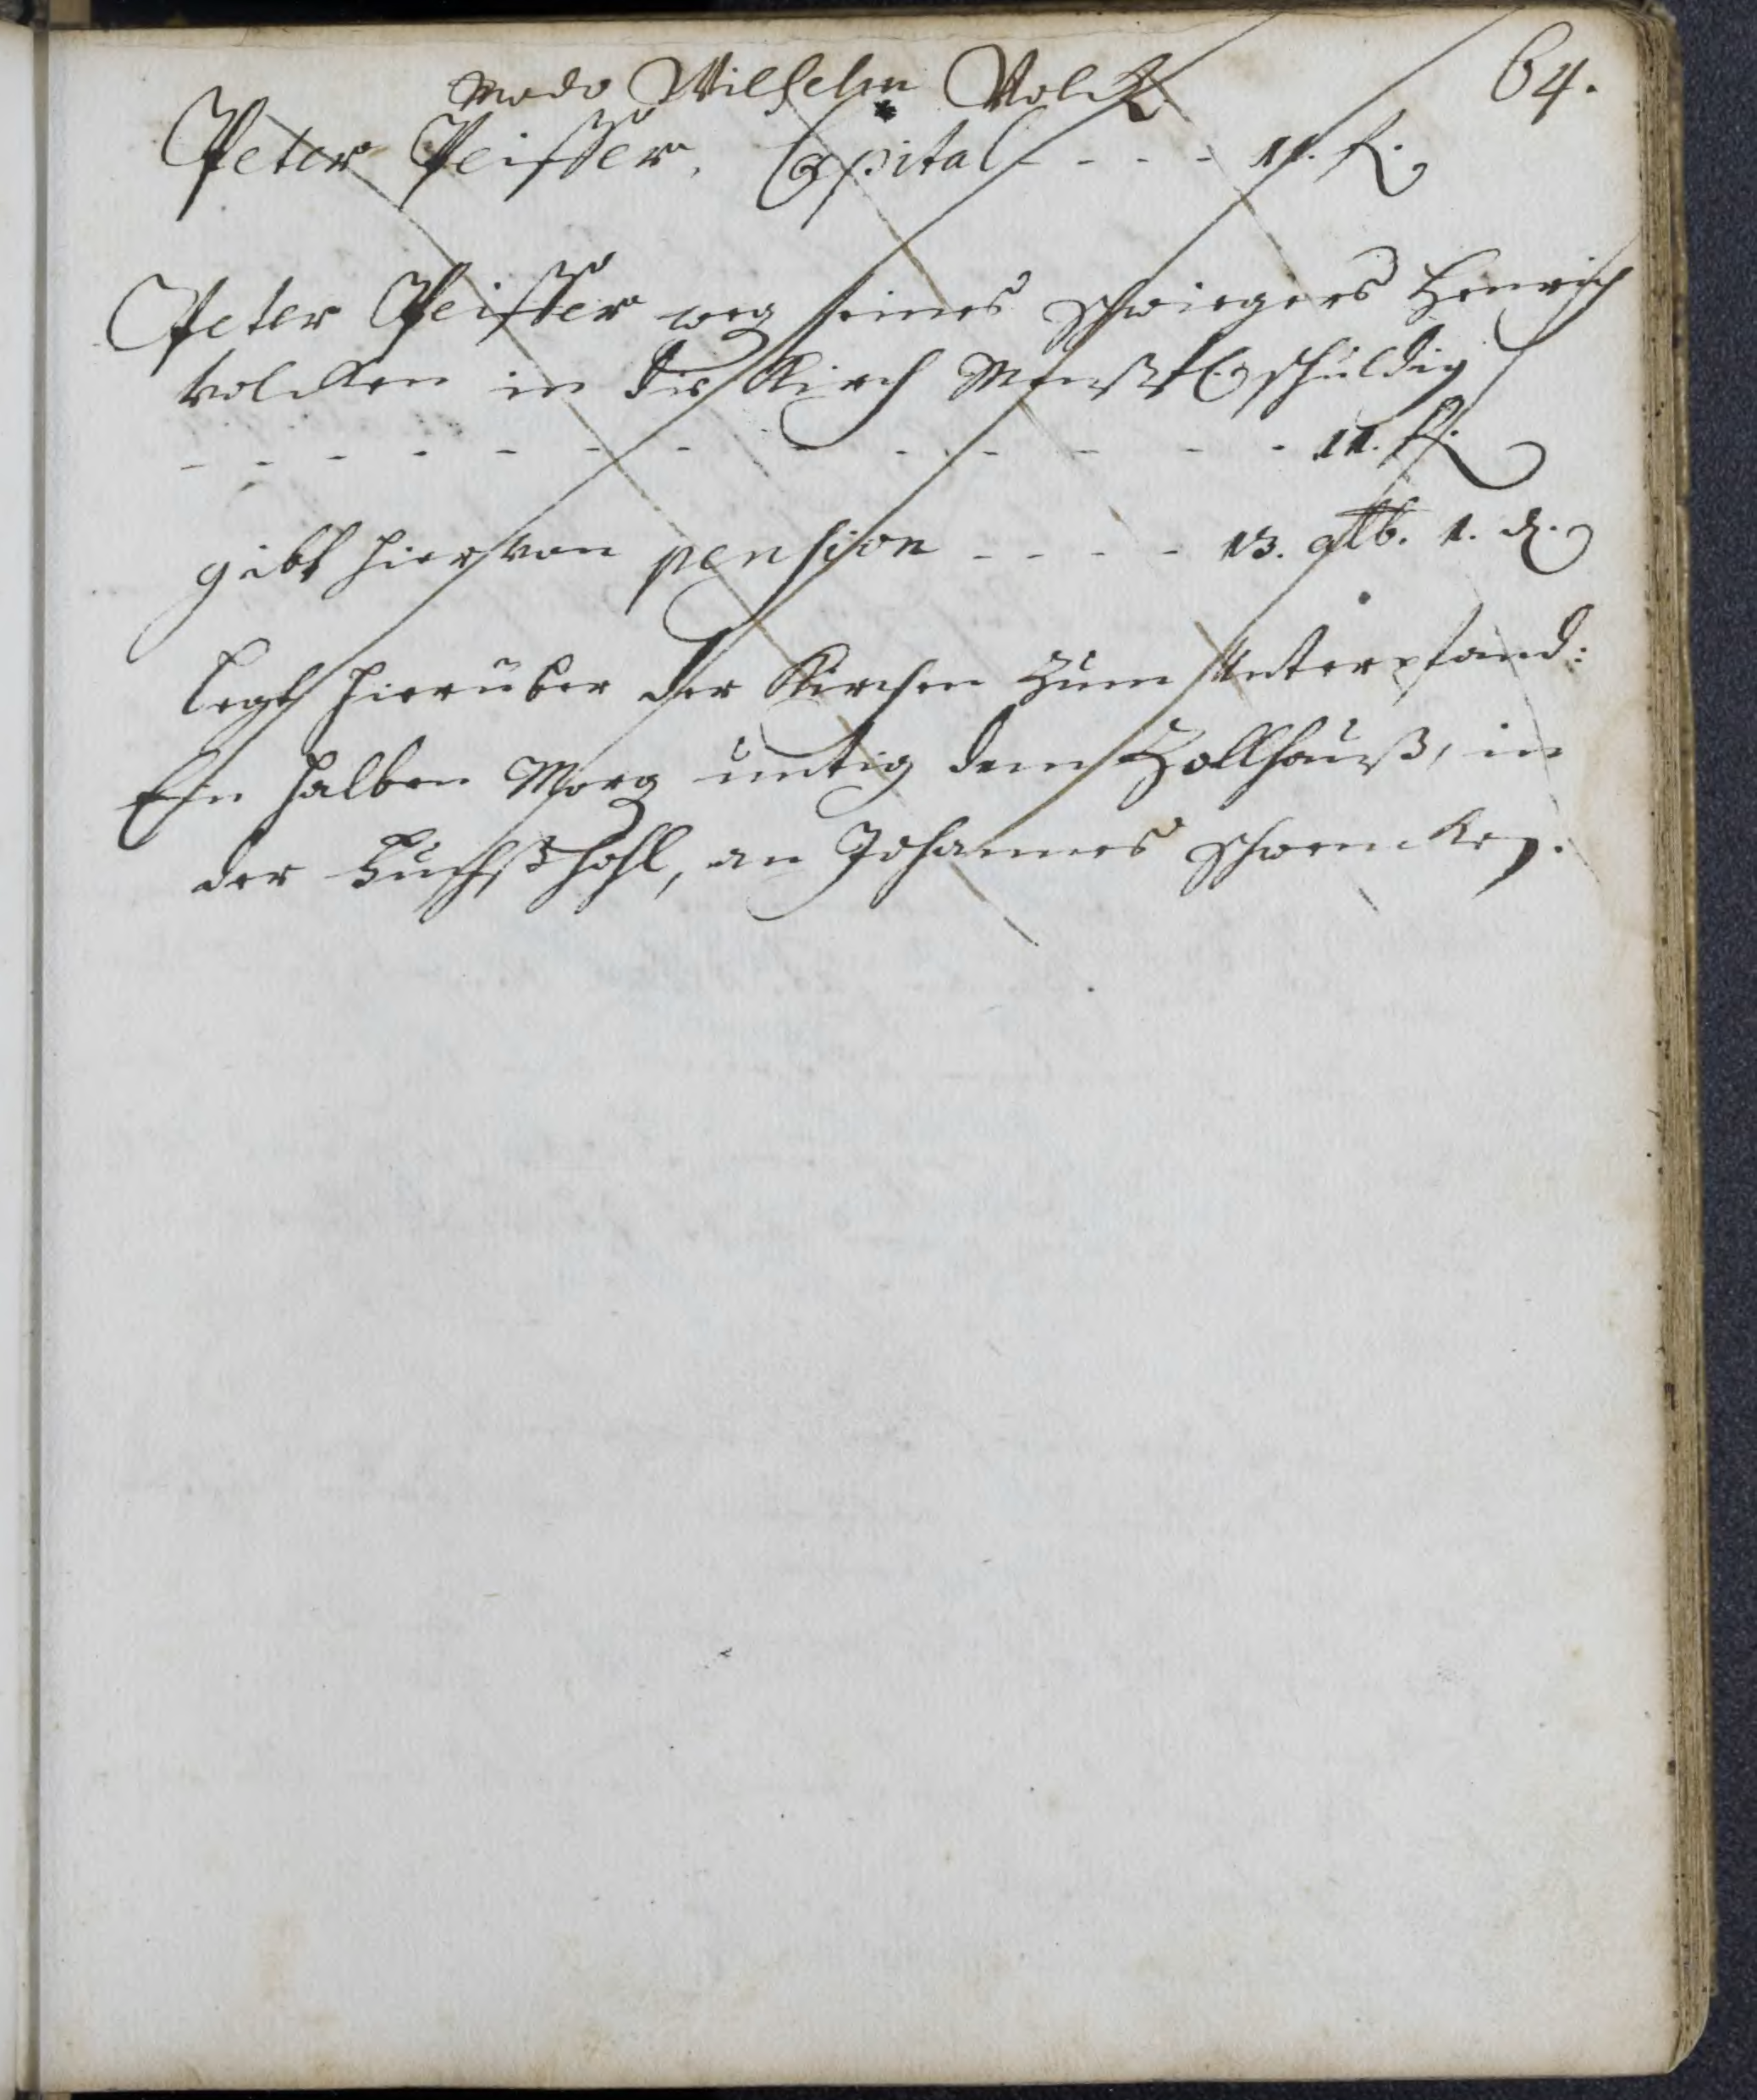 64.
modo Wilhelm Volck
Peter Peiffer. Capital - - - - 11. fl.
Peter Peiffer weg seines schwiegers Henrich
Volcken in die Kirch schuldig
- - - - - - - - - - - - - 11. fl.
gibt hiervon pension - - - - 13. alb. 1. d.
legt hierüber der Kirchen zum Unterpfand:
Ein halben Morg untig dem Zollhauß, in
der hohl, an Johannes